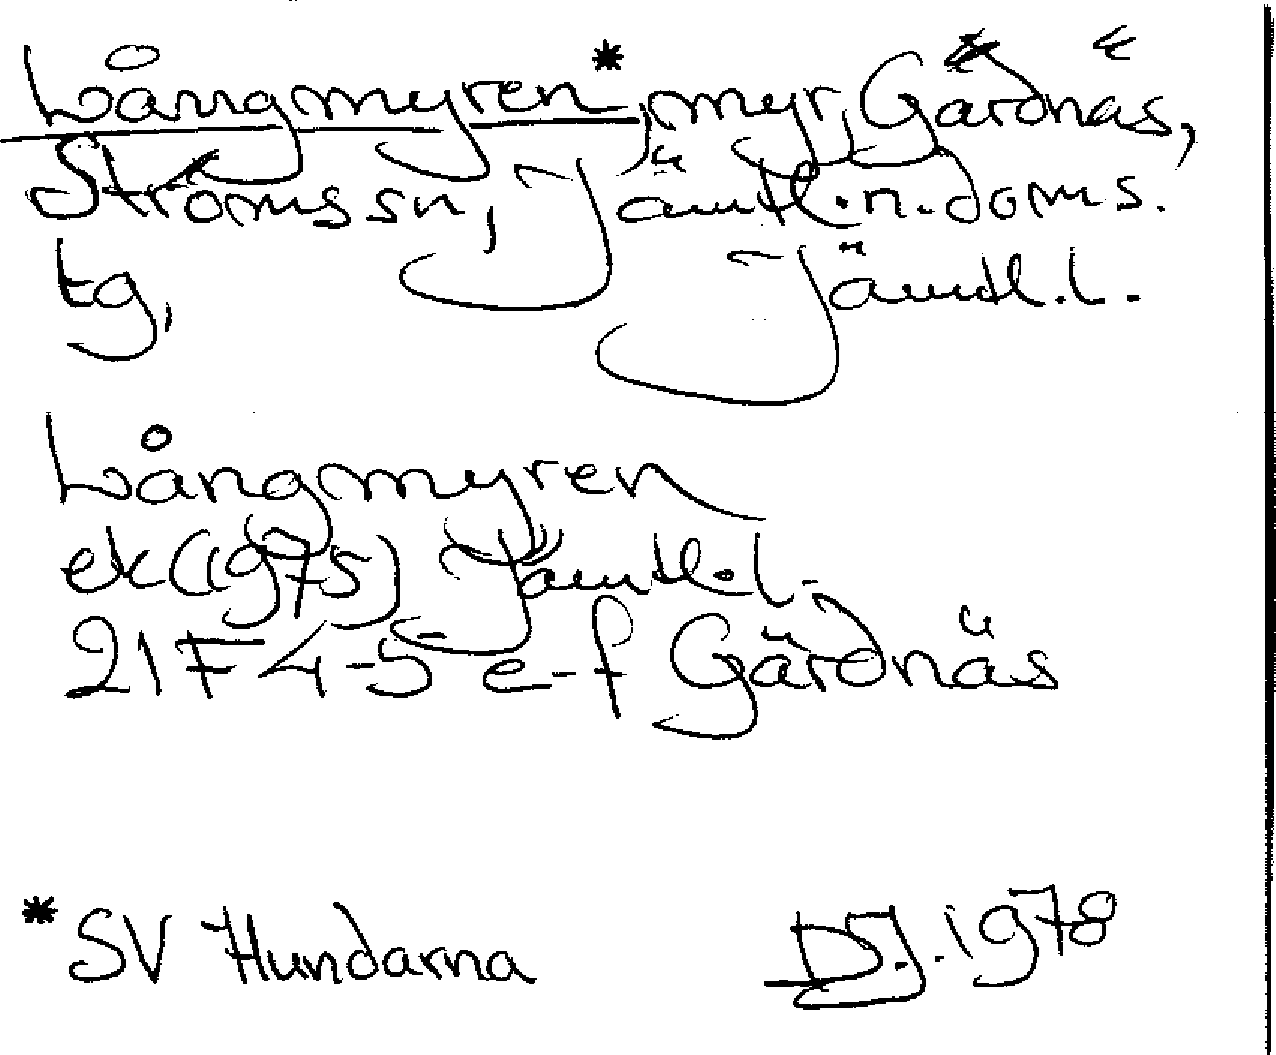 Långmyren*, myr, Gärdnäs,
Ströms sn, Jämtl. n. doms.
tg, Jämtl. l.
Långmyren
ek (1975) Jämtl. l.
21 F 4-5 e-f Gärdnäs
* SV Hundarna D.J. 1978